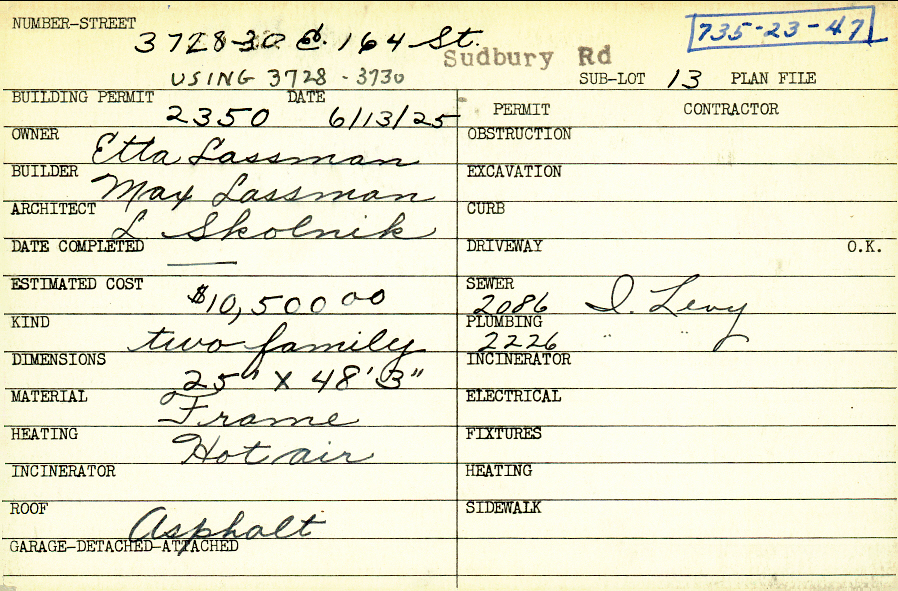 NUMBER-STREET
3728-30 E. 164 St.
735-23-47
Sudbury Rd
USING 3728-3730
SUB-LOT 13 PLAN FILE
BUILDING PERMIT 2350 DATE 6/13/25
PERMIT CONTRACTOR
OWNER Etta Lassman
OBSTRUCTION
BUILDER Max Lassman
EXCAVATION
ARCHITECT L. Skolnik
CURB
DATE COMPLETED —
DRIVEWAY O.K.
ESTIMATED COST $10,500 00
SEWER 2086 I. Levy
KIND two family
PLUMBING 2226 " "
DIMENSIONS 25" X 48'3"
INCINERATOR
MATERIAL Frame
ELECTRICAL
HEATING Hot air
FIXTURES
INCINERATOR
HEATING
ROOF Asphalt
SIDEWALK
GARAGE-DETACHED-ATTACHED